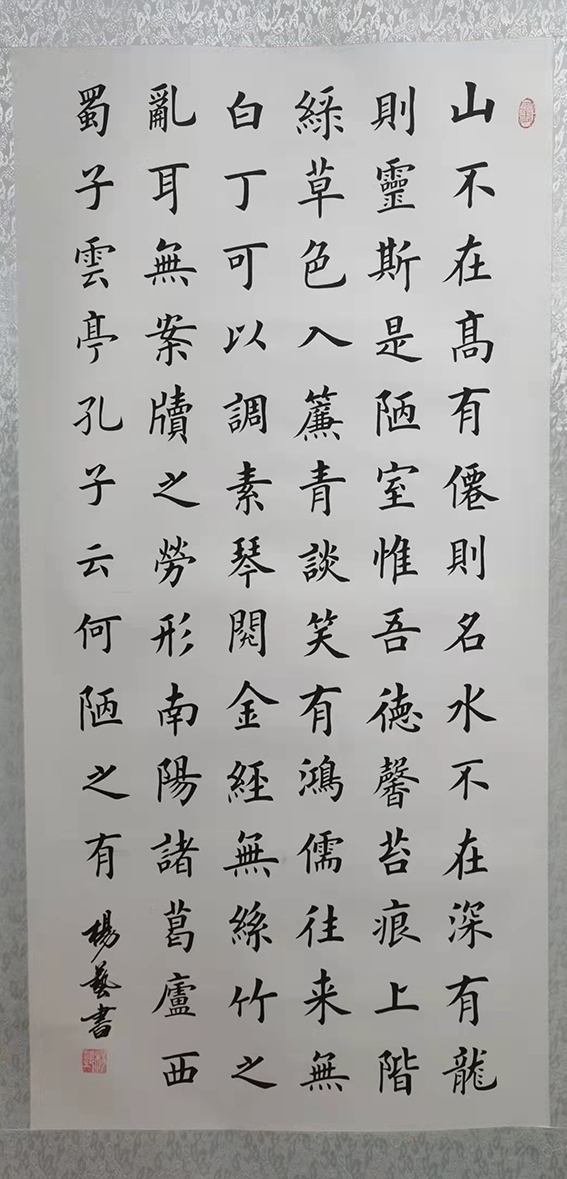 山不在高有僊則名水不在深有龍
則靈斯是陋室惟吾德馨苔痕上階
綠草色入簾青談笑有鴻儒往来無
白丁可以調素琴閱金經無絲竹之
亂耳無案牘之勞形南陽諸葛廬西
蜀子雲亭孔子云何陋之有
楊藝書